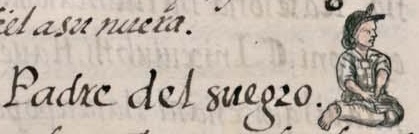 el a su nuera.
Padre del suegro.